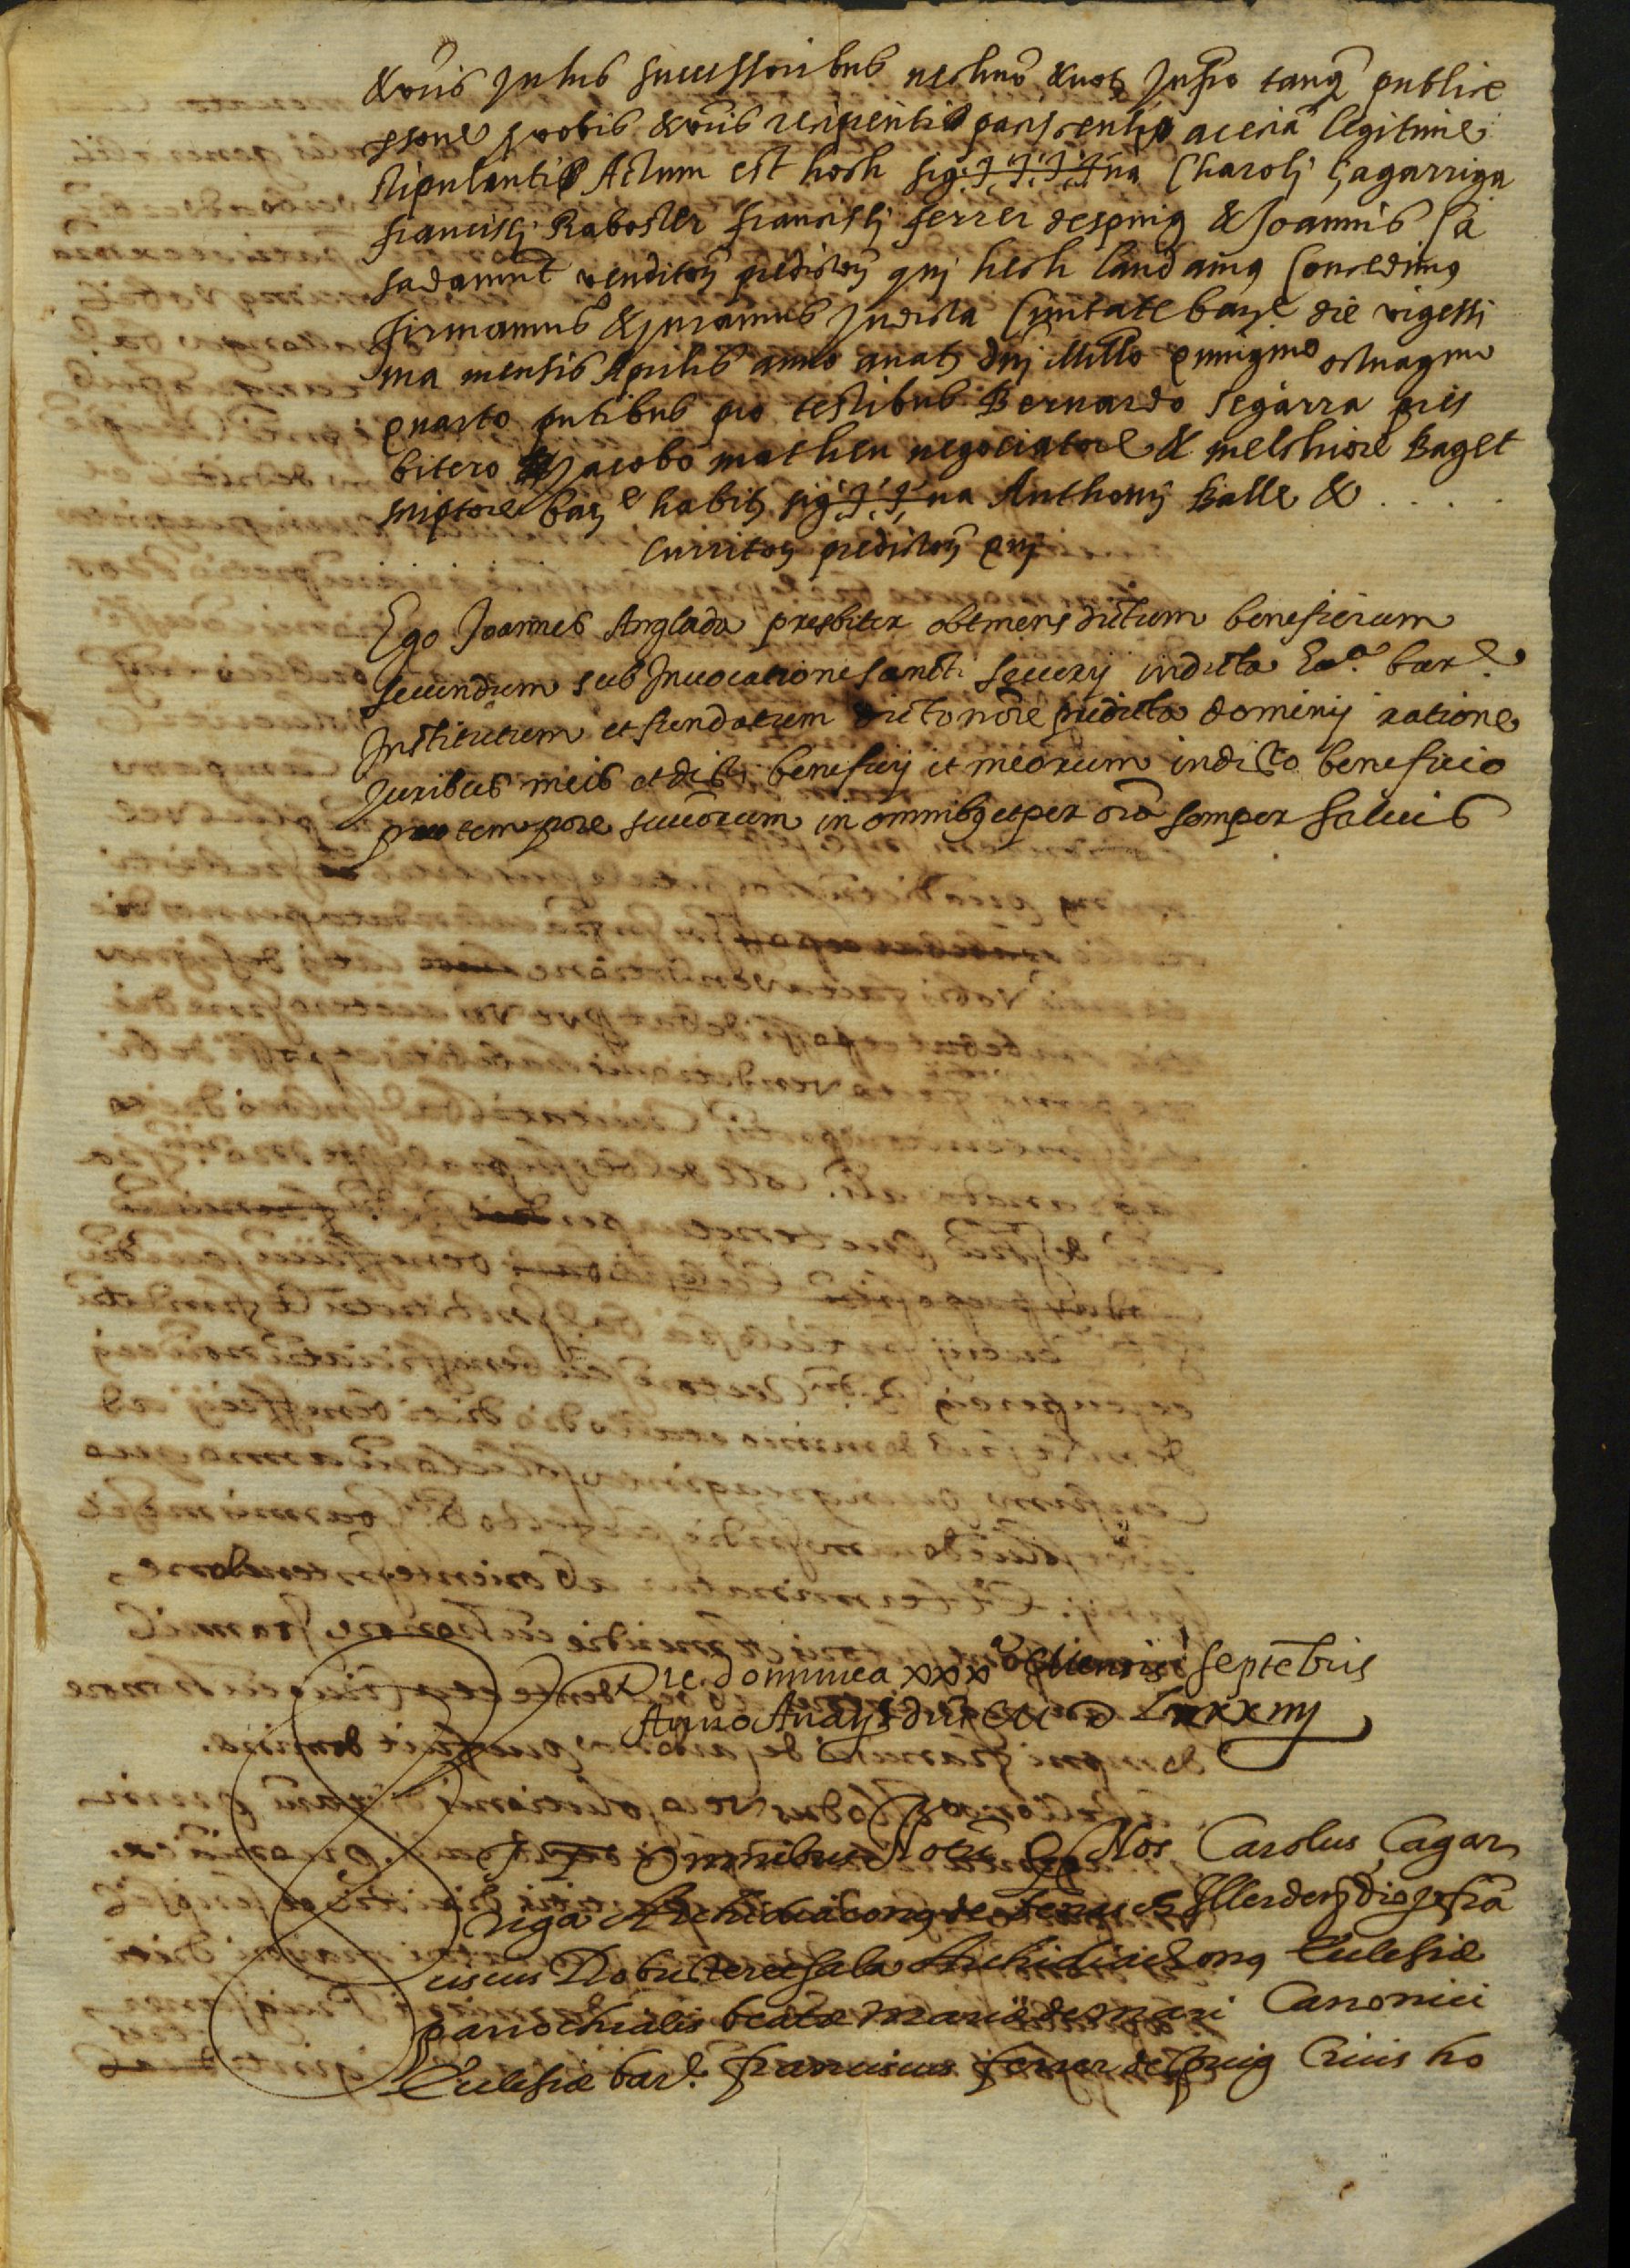 & vr̄is In his successoribus necnon & not. Infro tanq̄ publice
p̄sone p̄ vobis & vr̄is recipientib paciscentib ac etiā legitime
stipulantib Actum est hoc sig na Charolj Çagarriga
francisci Raboster francisci ferrer despuig & Joannis Ça
sadamunt venditor̄ predictor̄ quj hec laudamus Concedimus
firmamus & juramus Indicta Ciuitate barꝫe die vigessi
ma mensis Aprilis anno a natꝫ dn̄j Millo quingmo octuagmo
quarto pn̄tibus pro testibus Bernardo Segarra pres
bitero Jacobo matheu negociatore & melchiore Baget
scriptore barꝫe habitꝫ sig na Anthonij Balle & . . . .
. . . . . Curritor̄ predictor̄ quj
Ego Joannes Anglada presbiter obtinens dictum beneficium
secundum sub Invocatione sancti seuerij in dicta Ecca. barᵉ.
Institutum et fundatum dicto noīe predicta dominij ratione
Juribus meis et dicti beneficij et meorum in dicto beneficio
pro tempore succorum in omnibꝫ et per oīa semper saluis
Die dominica xxx Mensis Septēbris
Anno A natꝫ dn̄i M D Lxxxiiij
Omnibus Notū Nos Carolus Çagar
riga Archidiaconꝫ de Illerdenꝫ dioꝫ fra
ciscus Robuster et sala Archidiaconꝫ Eclesiæ
parrochialis beatæ mariæ de mari Canonici
Eclesiæ barᵉ. franciscus ferrer despuig Ciuis ho